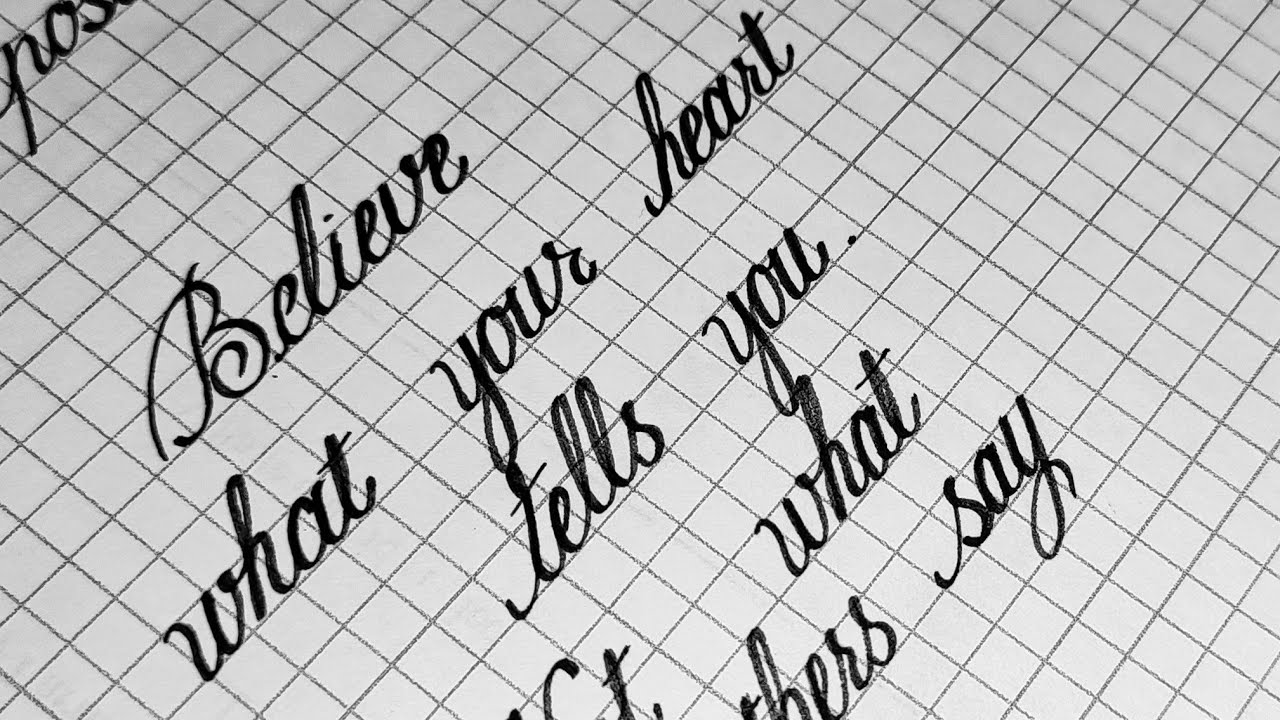 Believe
what your heart
tells you.
what
say